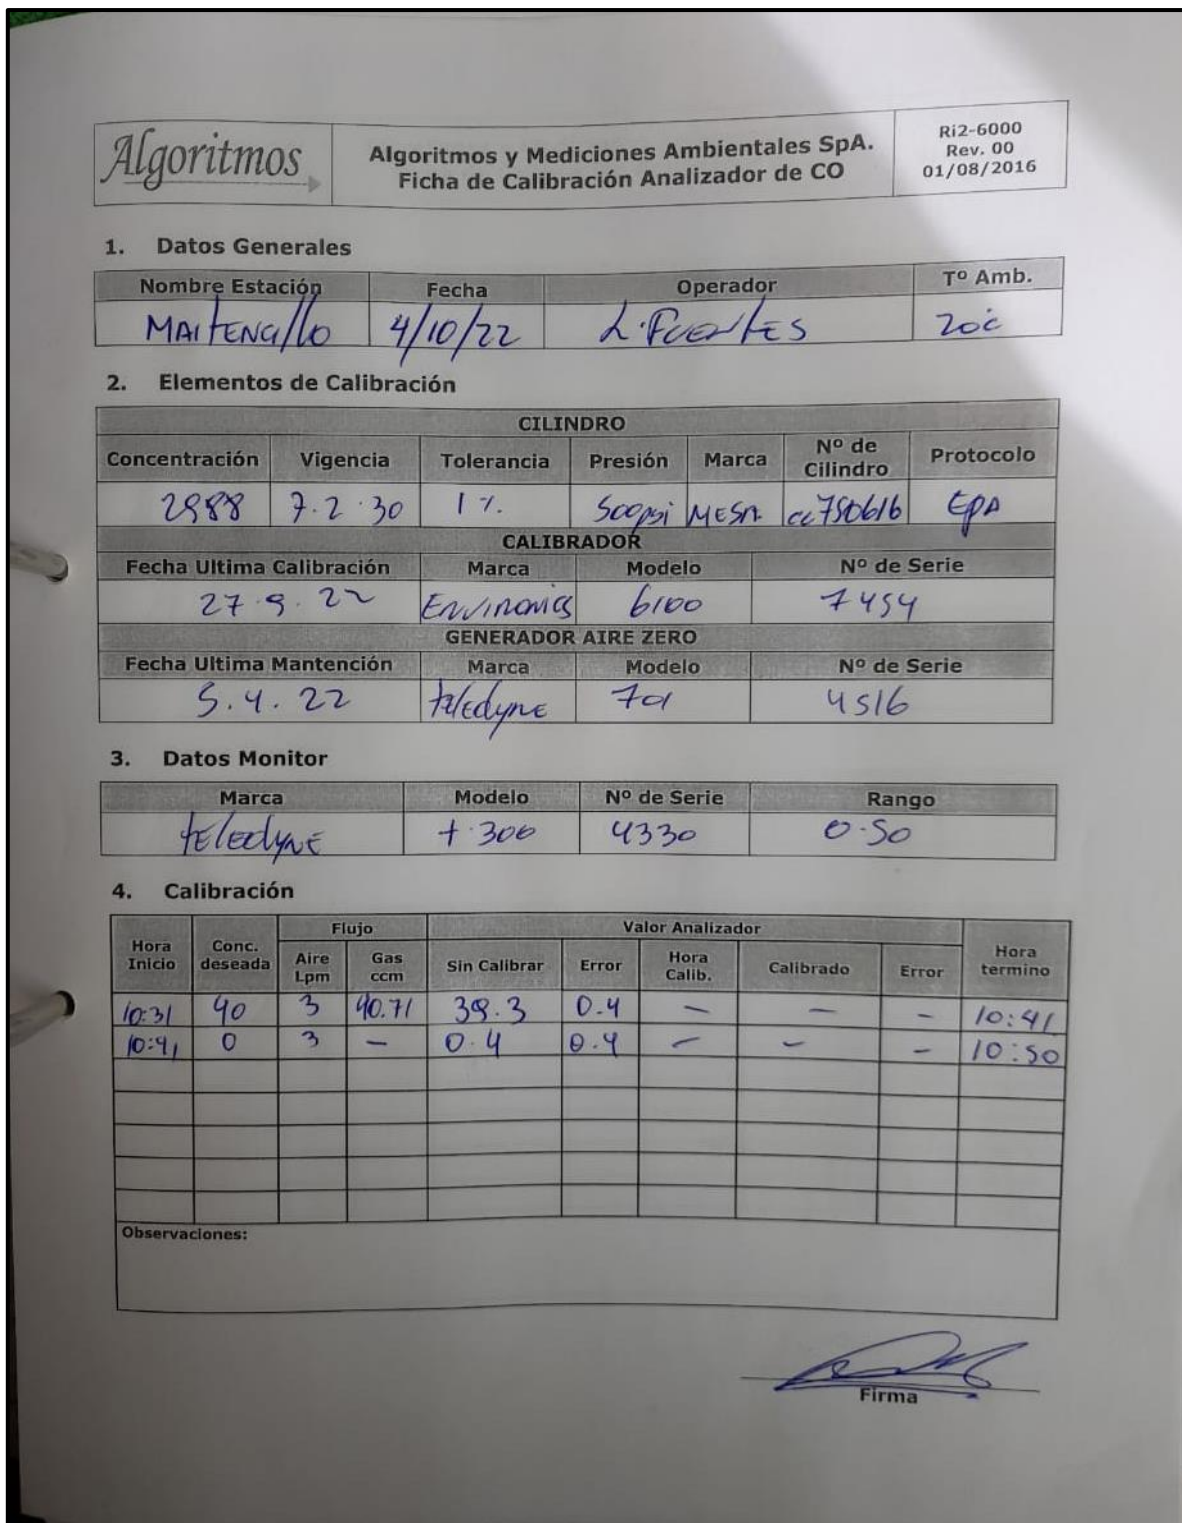 Algoritmos
Algoritmos y Mediciones Ambientales SpA.
Ficha de Calibración Analizador de CO
Ri2-6000
Rev. 00
01/08/2016
1. Datos Generales
Nombre Estación Fecha Operador Tº Amb.
MAITENCILLO 4/10/22 L. FUENTES 20ºc
2. Elementos de Calibración
CILINDRO
Concentración Vigencia Tolerancia Presión Marca Nº de Cilindro Protocolo
2988 7.2.30 1% 500psi MESA cc750616 EPA
CALIBRADOR
Fecha Ultima Calibración Marca Modelo Nº de Serie
27.9.22 Environics 6100 7454
GENERADOR AIRE ZERO
Fecha Ultima Mantención Marca Modelo Nº de Serie
5.4.22 teledyne 701 4516
3. Datos Monitor
Marca Modelo Nº de Serie Rango
teledyne t.300 4330 0-50
4. Calibración
Hora Inicio Conc. deseada Flujo Valor Analizador Hora termino
Aire Lpm Gas ccm Sin Calibrar Error Hora Calib. Calibrado Error
10:31 40 3 40.71 39.3 0.4 - - - 10:41
10:41 0 3 - 0.4 0.4 - - - 10:50
Observaciones:
Firma